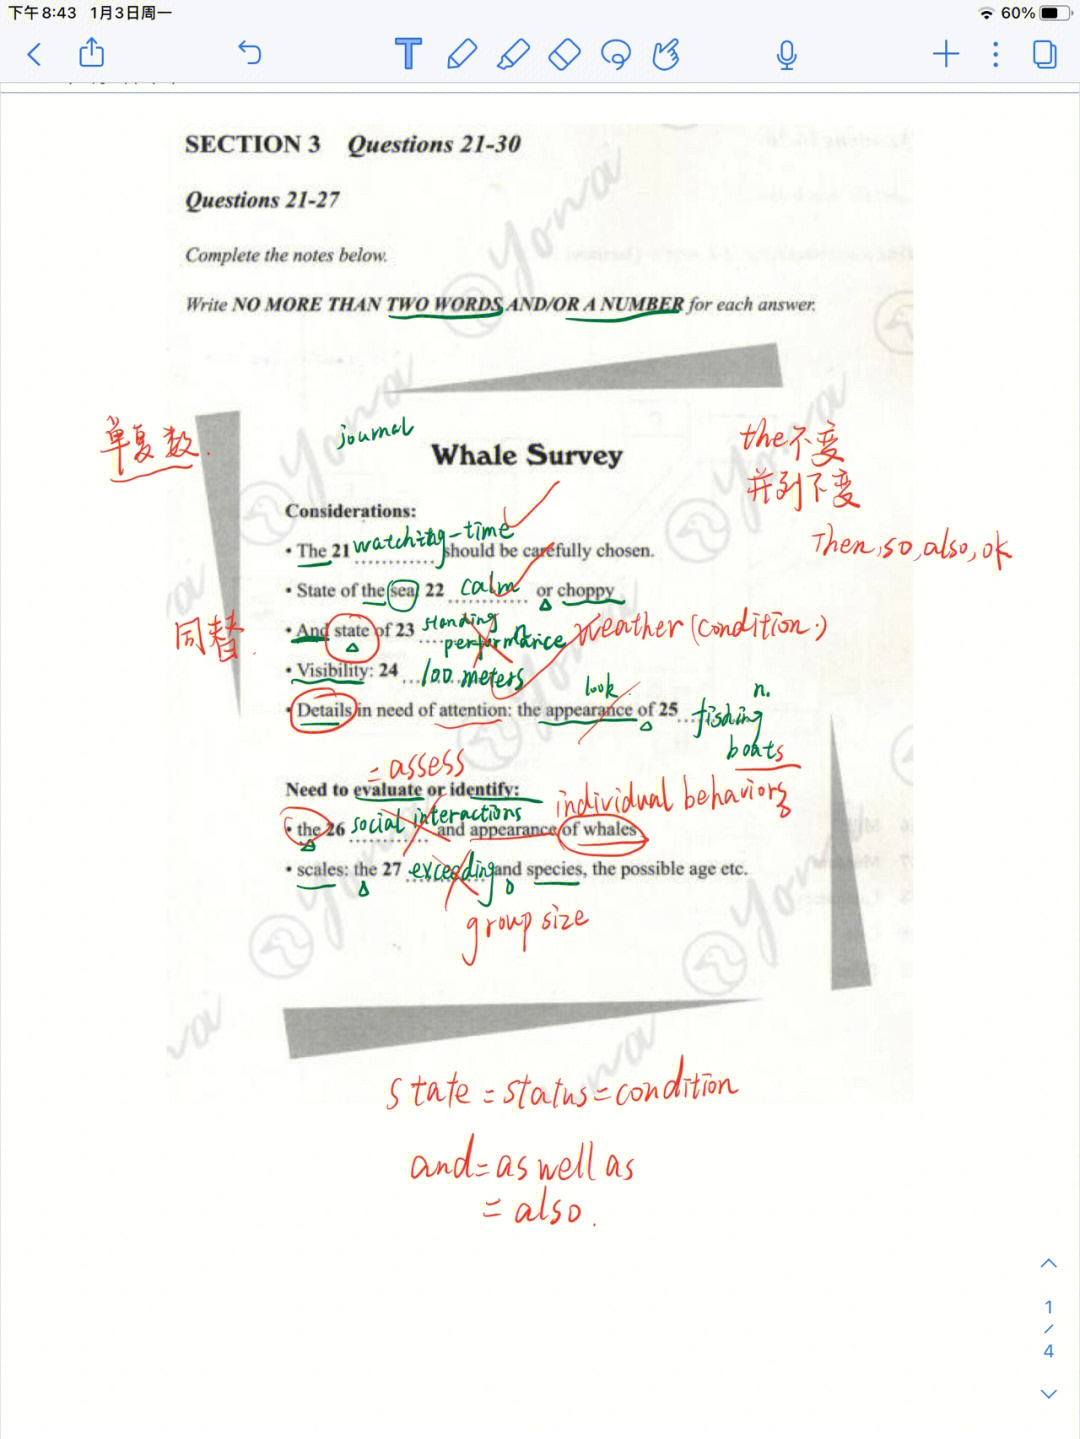 下午8:43 1月3日周一
60%
T
SECTION 3 Questions 21-30
Questions 21-27
Complete the notes below.
Write NO MORE THAN TWO WORDS AND/OR A NUMBER for each answer.
单复数.
journal
Whale Survey
the不变
并列不变
Then, so, also, ok
Considerations:
• The 21 watching-time should be carefully chosen.
• State of the sea 22 calm or choppy
同替.
• And state of 23 standing performance weather (condition.)
• Visibility: 24 100 meters
look
n.
• Details in need of attention: the appearance of 25 fishing boats
= assess
Need to evaluate or identify:
individual behaviors
• the 26 social interactions and appearance of whales
• scales: the 27 exceeding and species, the possible age etc.
group size
state = status = condition
and = as well as
= also.
1
/
4
@yona
@yona
@yona
@yona
@yona
@yona